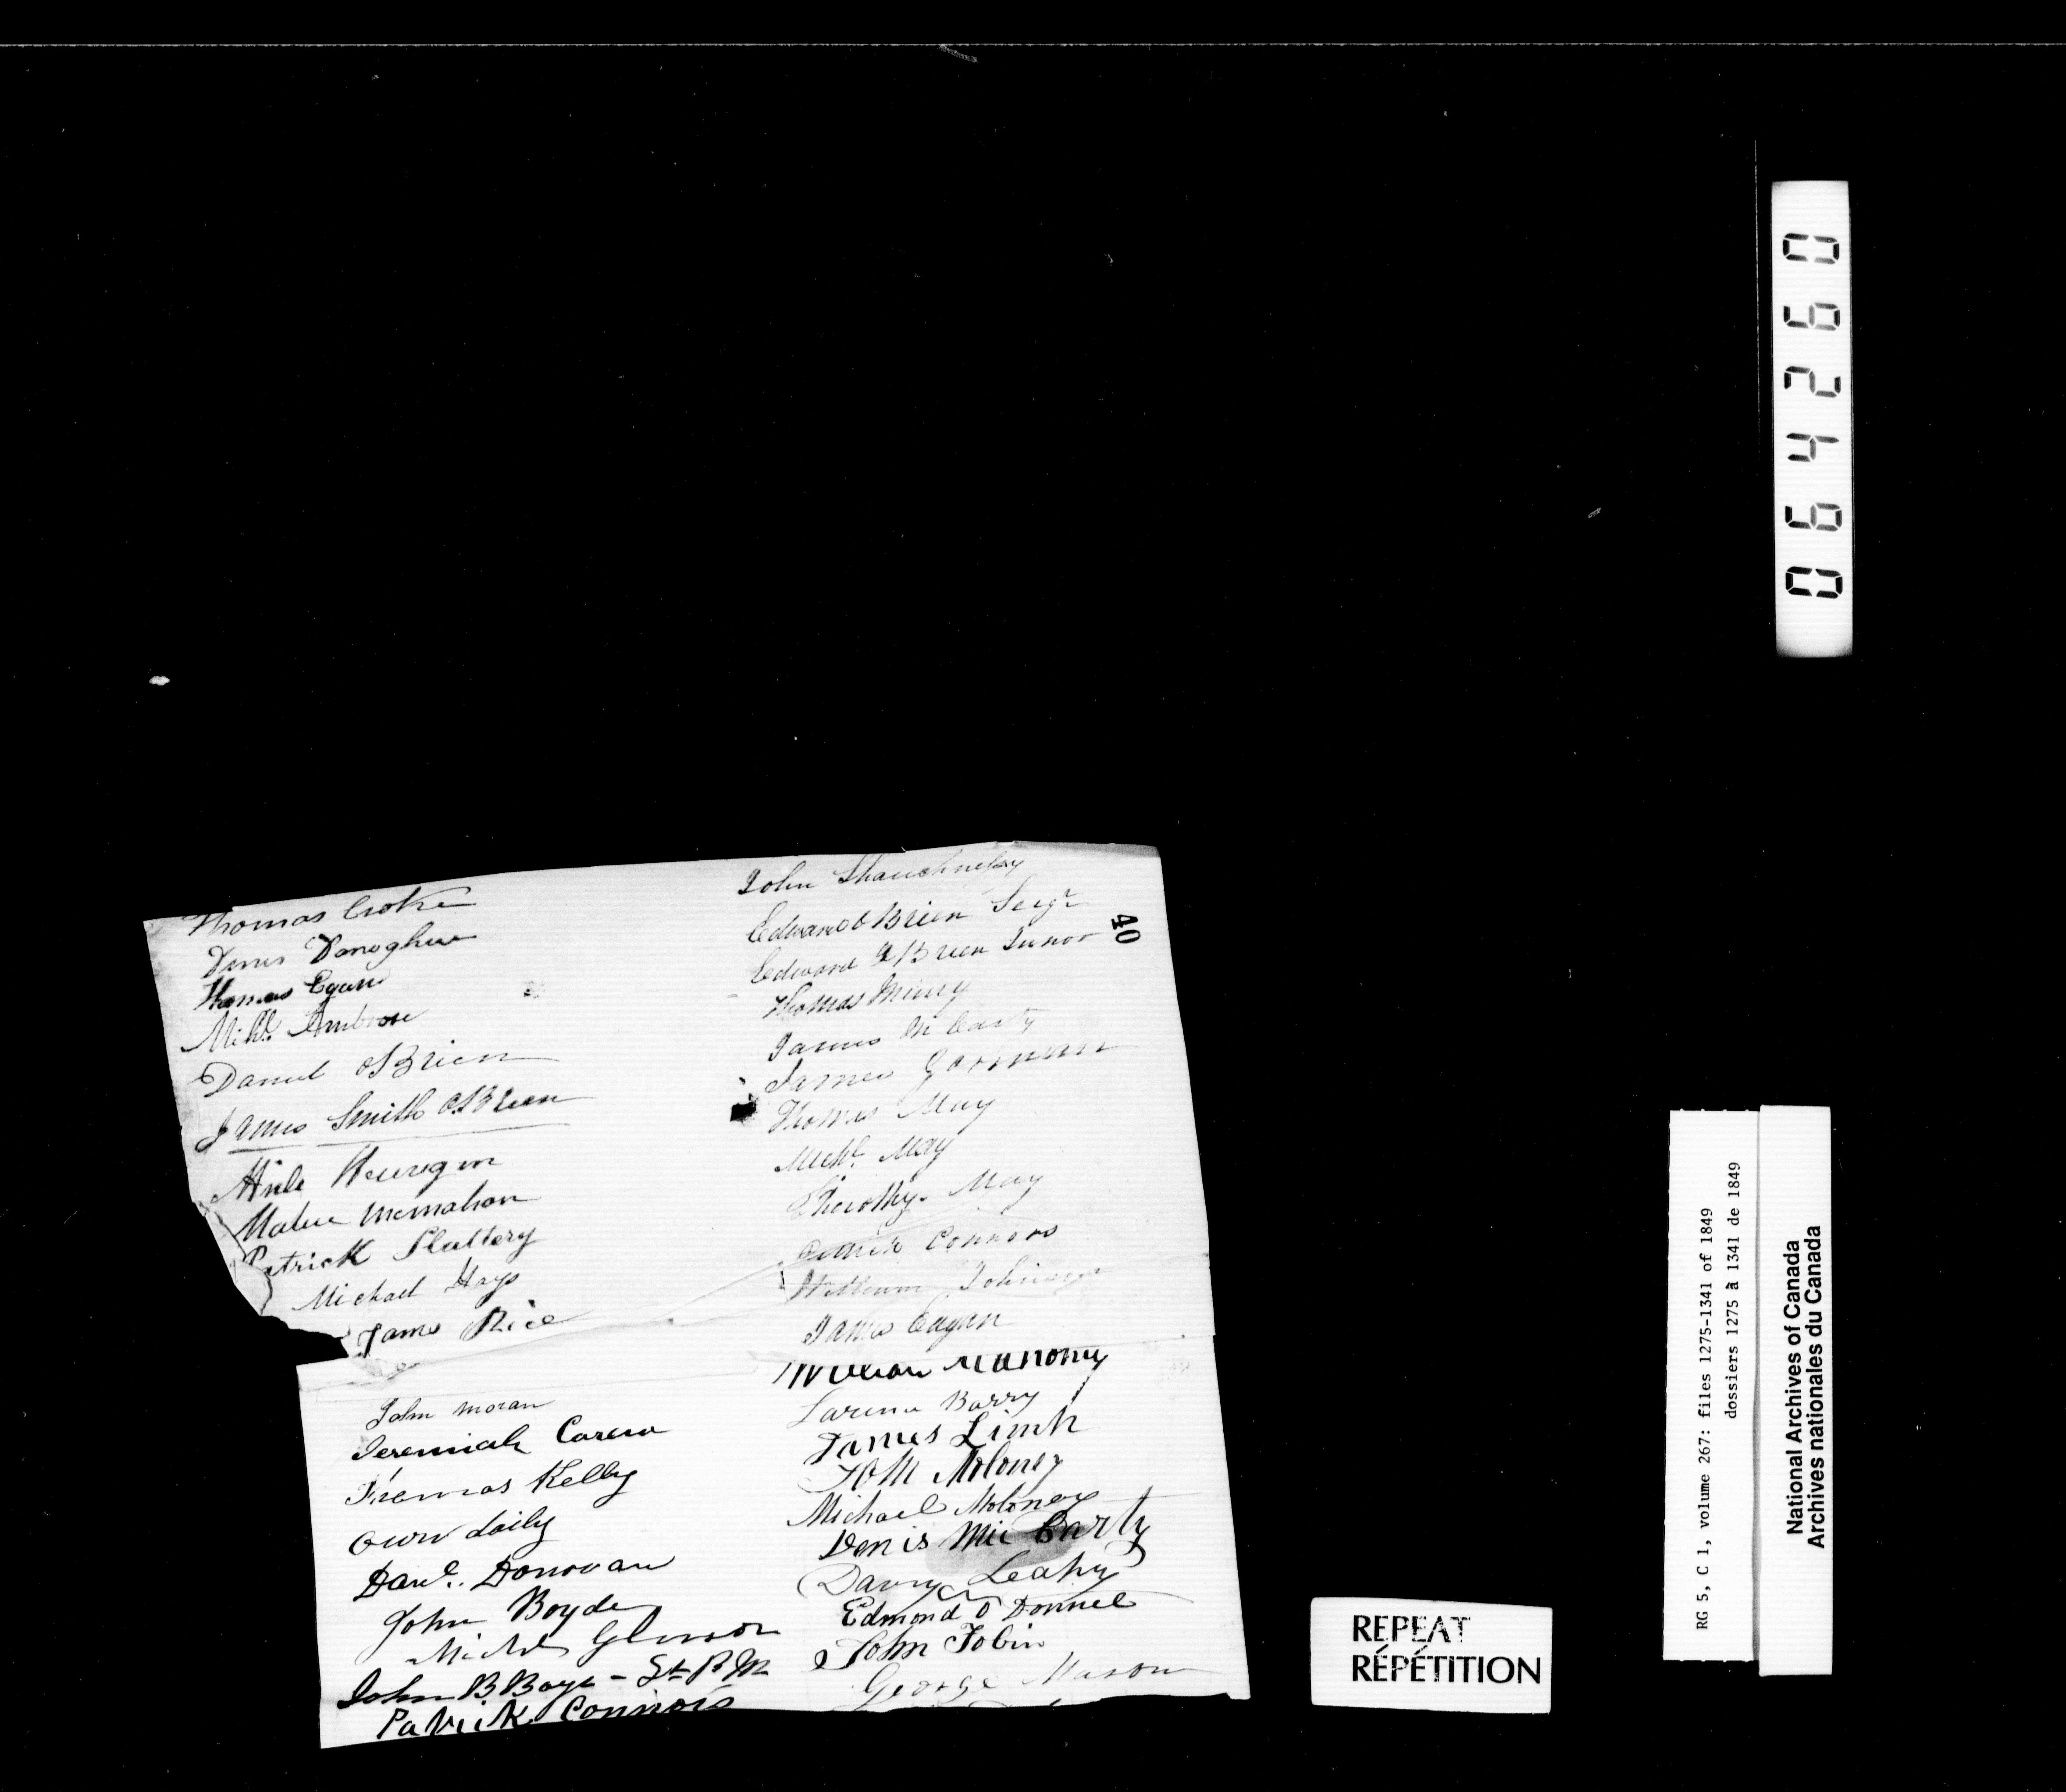 Thomas Croke
Denis Donoghue
Thomas Egan
Michl. Ambrose
Daniel OBrien
James Smith OBrien
Mahue Mcmahon
Patrick Slattery
Michael Hays
James Rice
John Moran
Jeremiah Carew
Thomas Kelly
Own daily
Danl. Donovan
John Boyde
Michl Gleeson
John B Boyle - St P M
Patrick Connors
John Shauchnessy
Edward OBrien
Edward OBrien Junor
Thomas
James Mc Carty
James Gorman
Thomas May
Michl. May
May
Connors
William
James Eagan
William Mahony
Barry
James Linch
Tom Moloney
Michael Moloney
Denis Mic Carty
Davy Leahy
Edmond O Donnel
John Tobin
George Mason
40
064260
RG 5, C 1, volume 267: files 1275-1341 of 1849
dossiers 1275 à 1341 de 1849
National Archives of Canada
Archives nationales du Canada
REPEAT
RÉPÉTITION